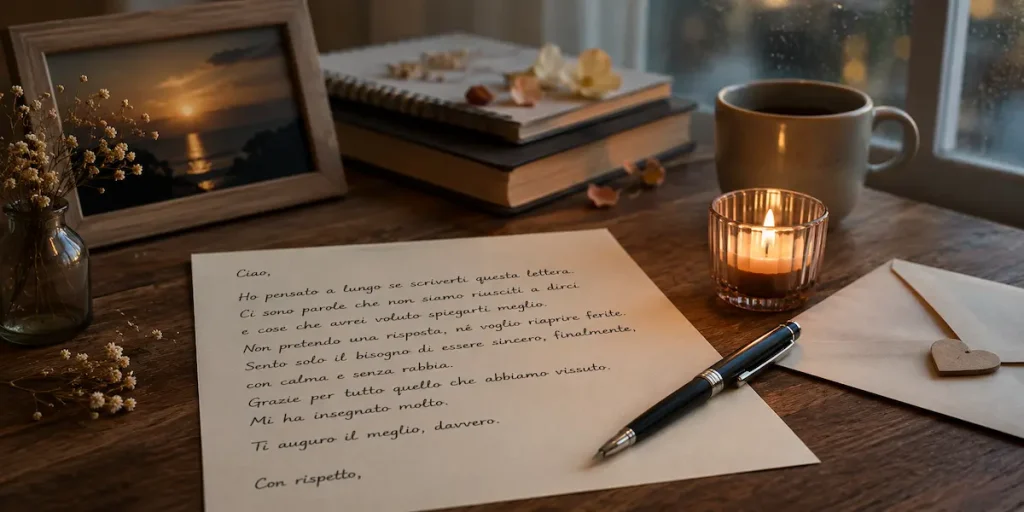 Ciao,
Ho pensato a lungo se scriverti questa lettera.
Ci sono parole che non siamo riusciti a dirci
e cose che avrei voluto spiegarti meglio.
Non pretendo una risposta, né voglio riaprire ferite.
Sento solo il bisogno di essere sincero, finalmente,
con calma e senza rabbia.
Grazie per tutto quello che abbiamo vissuto.
Mi ha insegnato molto.
Ti auguro il meglio, davvero.
Con rispetto,